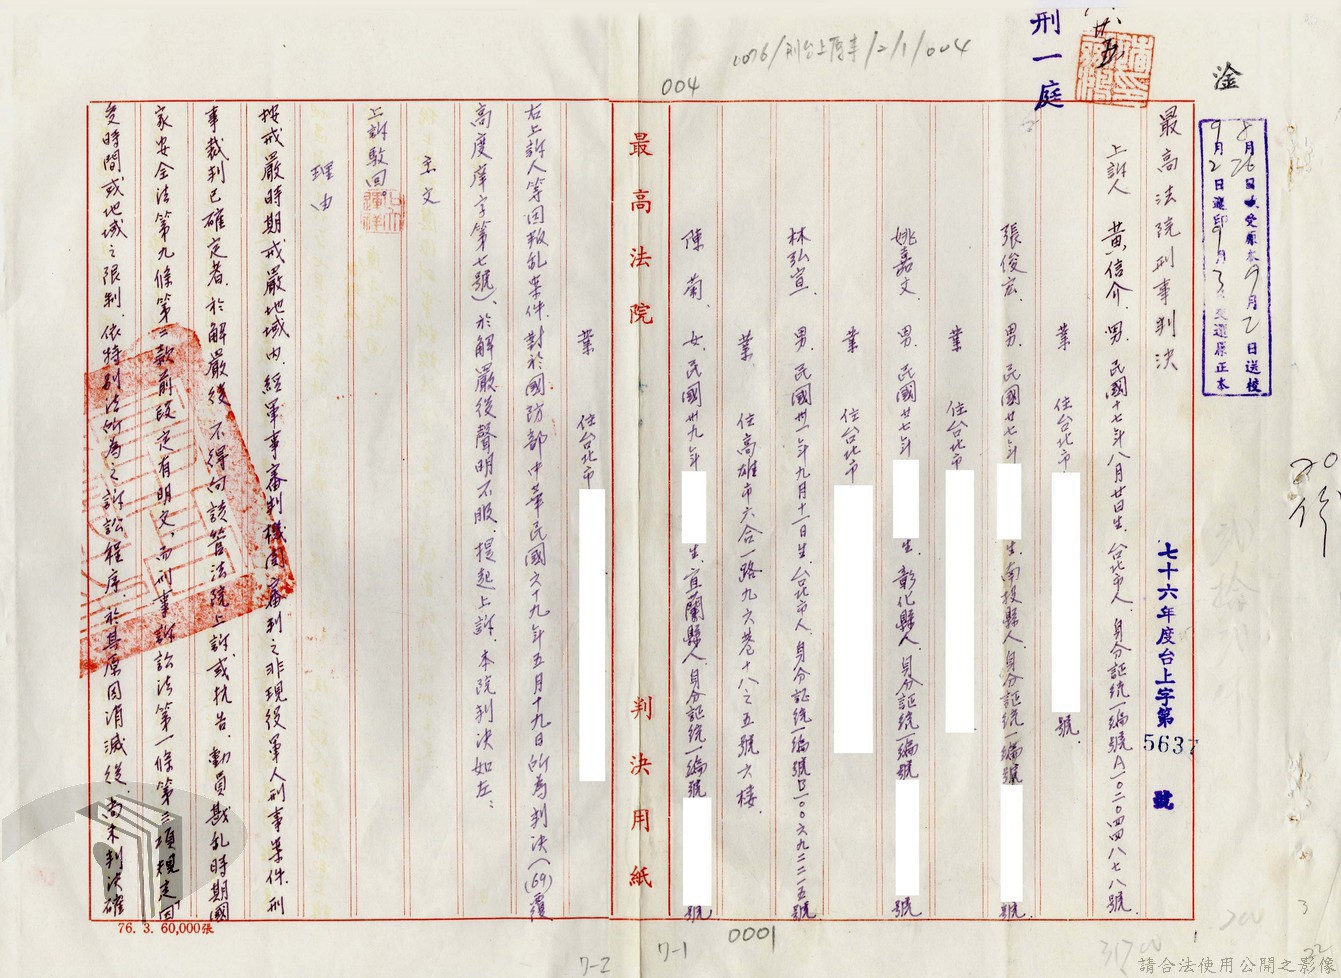 0076/刑台上度事/2/1/004
004
刑一庭
淦
8月26日收受原本9月2日送校
9月2日還印9月3日交還原正本
最高法院刑事判決
七十六年度台上字第5637號
上訴人 黃信介 男、民國十七年八月廿日生、台北市人、身分証統一編號A一〇二〇四四八七八號
業 住台北市 號
張俊宏、男、民國廿七年 生、南投縣人、身分証統一編號 號
業 住台北市
姚嘉文 男、民國廿七年 生、彰化縣人、身分証統一編號 號
業 住台北市
林弘宣、男、民國卅一年九月十一日生、台北市人、身分証統一編號B一〇〇六九二二一五號
業 住高雄市六合一路九六巷十八之五號六樓、
陳菊、女、民國卅九年 生、宜蘭縣人、身分証統一編號 號
最高法院 判決用紙
業 住台北市
右上訴人等因叛乱案件、對於國防部中華民國六十九年五月十九日所為判決(（69）覆
高度庠字第七號)、於解嚴後聲明不服、提起上訴、本院判決如左：
主文
上訴駁回。
理由
按戒嚴時期戒嚴地域內、經軍事審判機関審判之非現役軍人刑事案件、刑
事裁判已確定者、於解嚴後、不得向該管法院上訴或抗告、動員戡乱時期國
家安全法第九條第二款前段定有明文、而刑事訴訟法第一條第三項規定因
受時間或地域之限制、依特別法所為之訴訟程序、於其原因消滅後、尚未判決確
76. 3. 60,000張
7-2
7-1
0001
請合法使用公開之影像